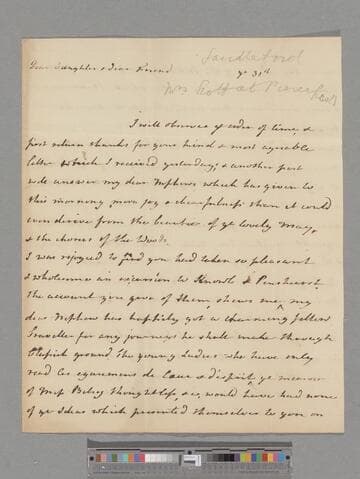 Sandleford
Dear Daughter & dear Friend ye 31st
Mrs Scott at
I will observe ye order of time, &
first return thanks for your kind & most agreeable
letter which I received yesterday; & another post
will answer my dear Nephews which has given to
this morning more joy & chearfulness than it could
even derive from the beauties of ye lovely May,
& the chorus of the Woods.
I was rejoyced to find you had taken so pleasant
& wholesome an excursion to Knowl & Penshurst
The account you gave of them shews me, my
dear Nephew has happily got a charming fellow
Traveller for any journeys he shall make through
Classick ground. The young Ladies who have only
read Les egaremens de Coeur & d'esprit, ye memoirs
of Miss Betsy Thoughtless, &c, would have had none
of ye Ideas which presented themselves to you on